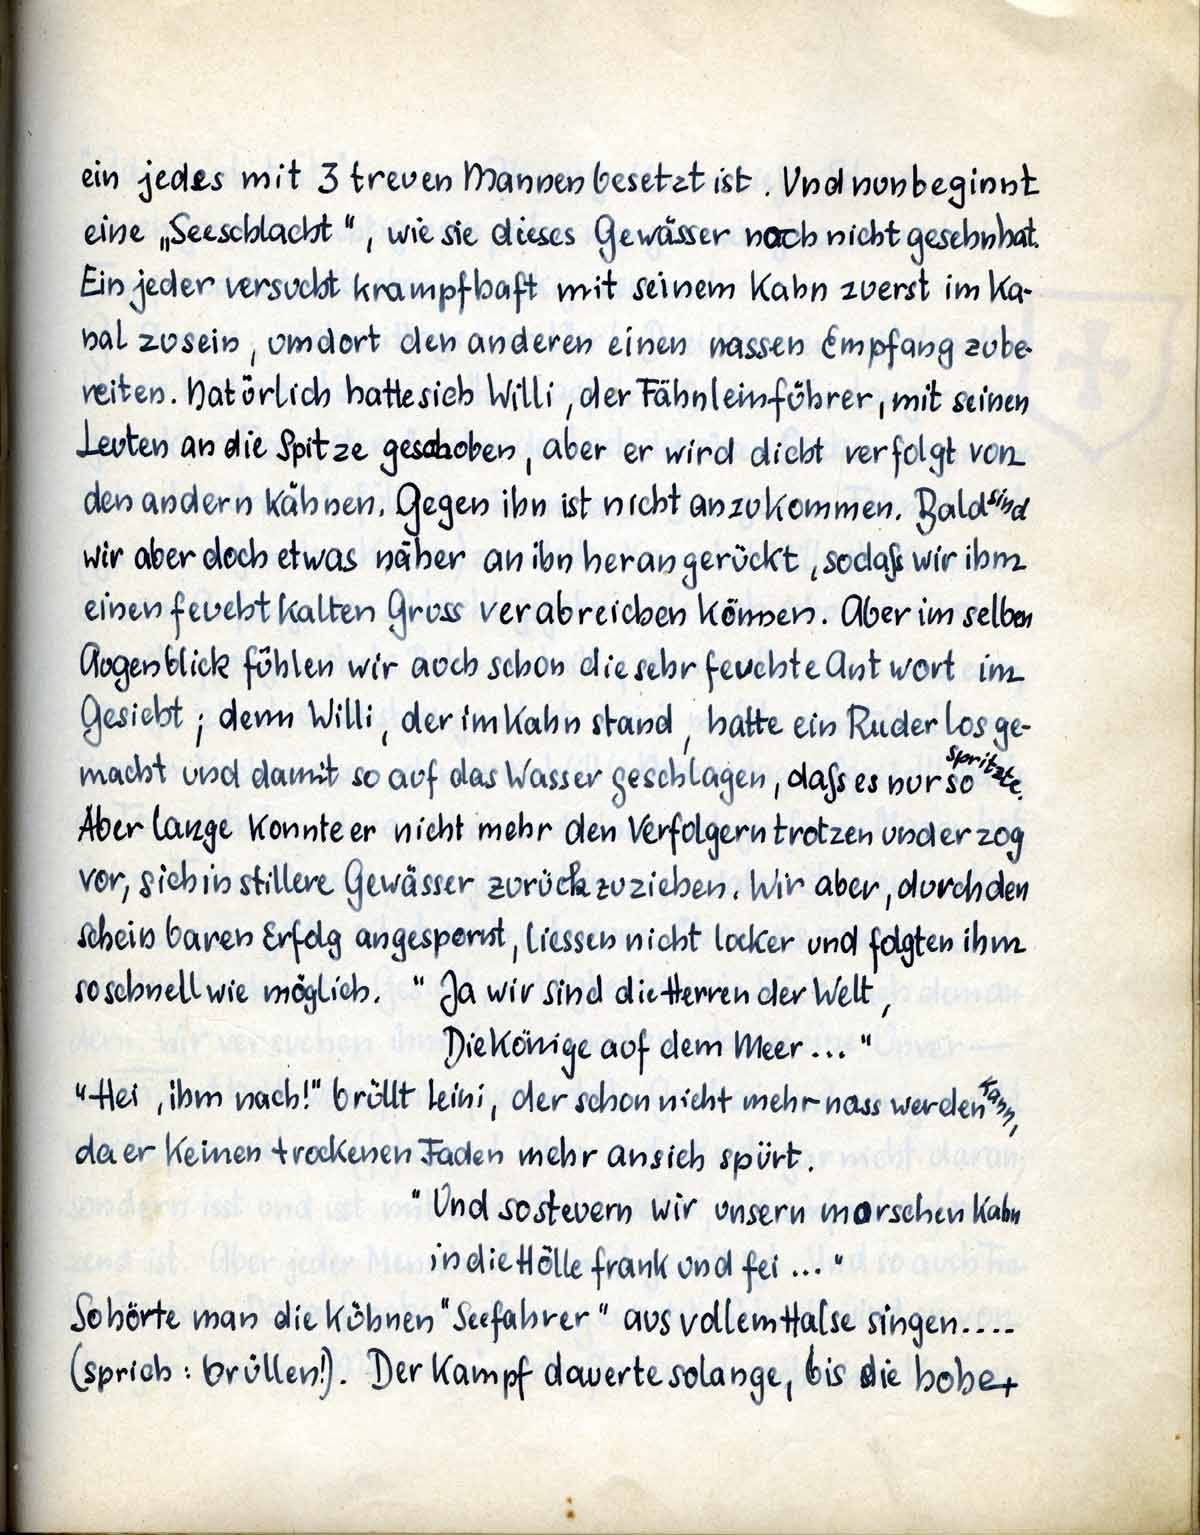 ein jedes mit 3 treuen Mannen besetzt ist. Und nun beginnt
eine „Seeschlacht“, wie sie dieses Gewässer noch nicht gesehn hat.
Ein jeder versucht krampfhaft mit seinem Kahn zuerst im Ka-
nal zu sein, um dort den anderen einen nassen Empfang zube-
reiten. Natürlich hatte sich Willi, der Fähnleinführer, mit seinen
Leuten an die Spitze geschoben, aber er wird dicht verfolgt von
den andern Kähnen. Gegen ihn ist nicht anzukommen. Bald sind
wir aber doch etwas näher an ihn herangerückt, sodaß wir ihm
einen feucht kalten Gruss verabreichen können. Aber im selben
Augenblick fühlen wir auch schon die sehr feuchte Antwort im
Gesicht; denn Willi, der im Kahn stand, hatte ein Ruder los ge-
macht und damit so auf das Wasser geschlagen, daß es nur so spritzte.
Aber lange konnte er nicht mehr den Verfolgern trotzen und er zog
vor, sich in stillere Gewässer zurückzuziehen. Wir aber, durch den
scheinbaren Erfolg angespornt, liessen nicht locker und folgten ihm
so schnell wie möglich. "Ja wir sind die Herren der Welt,
Die Könige auf dem Meer ... "
"Hei, ihm nach!" brüllt Leini, der schon nicht mehr nass werden kann,
da er keinen trockenen Faden mehr an sich spürt.
"Und so steuern wir unsern morschen Kahn
in die Hölle frank und fei ... "
So hörte man die kühnen "Seefahrer" aus vollem Halse singen....
(sprich: brüllen!). Der Kampf dauerte solange, bis die hohe